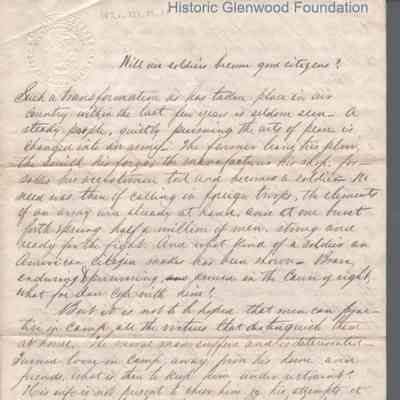 Historic Glenwood Foundation
Will our soldiers become good citizens?
Such a transformation as has taken place in our
country within the last few years is seldom seen - A
steady people, quietly pursuing the arts of peace is
changed into an army. The farmer leaves his plow,
the smith his forge, the manufacturer his shop, for-
sakes his vocation and becomes a soldier - No
need was there of calling in foreign troops, the elements
of an army were already at hand, and at one burst
forth spring half a million of men, strong and
ready for the fight. And what kind of a soldier an
American citizen makes has been shown - Brave,
enduring & persevering, and armed in the cause of right,
what foe can cope with him!
But it is not to be hoped that men can prac-
tice in camp, all the virtues that distinguish them
at home. The moral man suffers and is deteriorated -
Turned loose in camp, away from his home and
friends, what is there to keep him under restraint?
His wife is not present to cheer him in his attempts at